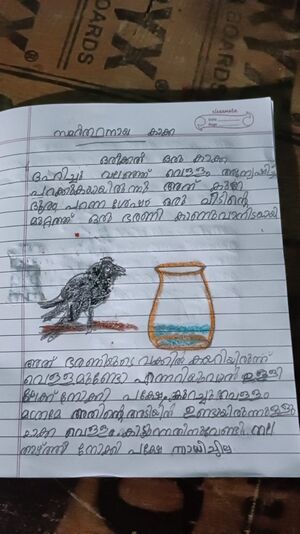 classmate
Date
Page
സമർത്ഥനായ കാക്ക
ഒരിക്കൽ ഒരു കാക്ക
ദാഹിച്ചു വലഞ്ഞ് വെള്ളം അന്വേഷിച്ച്
പറക്കുകയായിരുന്നു അത് കുറേ
ദൂരം പറന്ന ശേഷം ഒരു വീടിന്റെ
മുറ്റത്ത് ഒരു ഭരണി കാണുവാനിടയായി
അത് ഭരണിയുടെ വക്കിൽ കയറിയിരുന്ന്
വെള്ളമുണ്ടോ എന്നറിയുവാൻ ഉള്ളി
ലേക്ക് നോക്കി പക്ഷേ കുറച്ചു വെള്ളം
മാത്രമേ അതിന്റെ അടിയിൽ ഉണ്ടായിരുന്നുള്ളു
കാക്ക വെള്ളം കിട്ടുന്നതിനുവേണ്ടി പല
നോക്കി പക്ഷേ സാധിച്ചില്ല